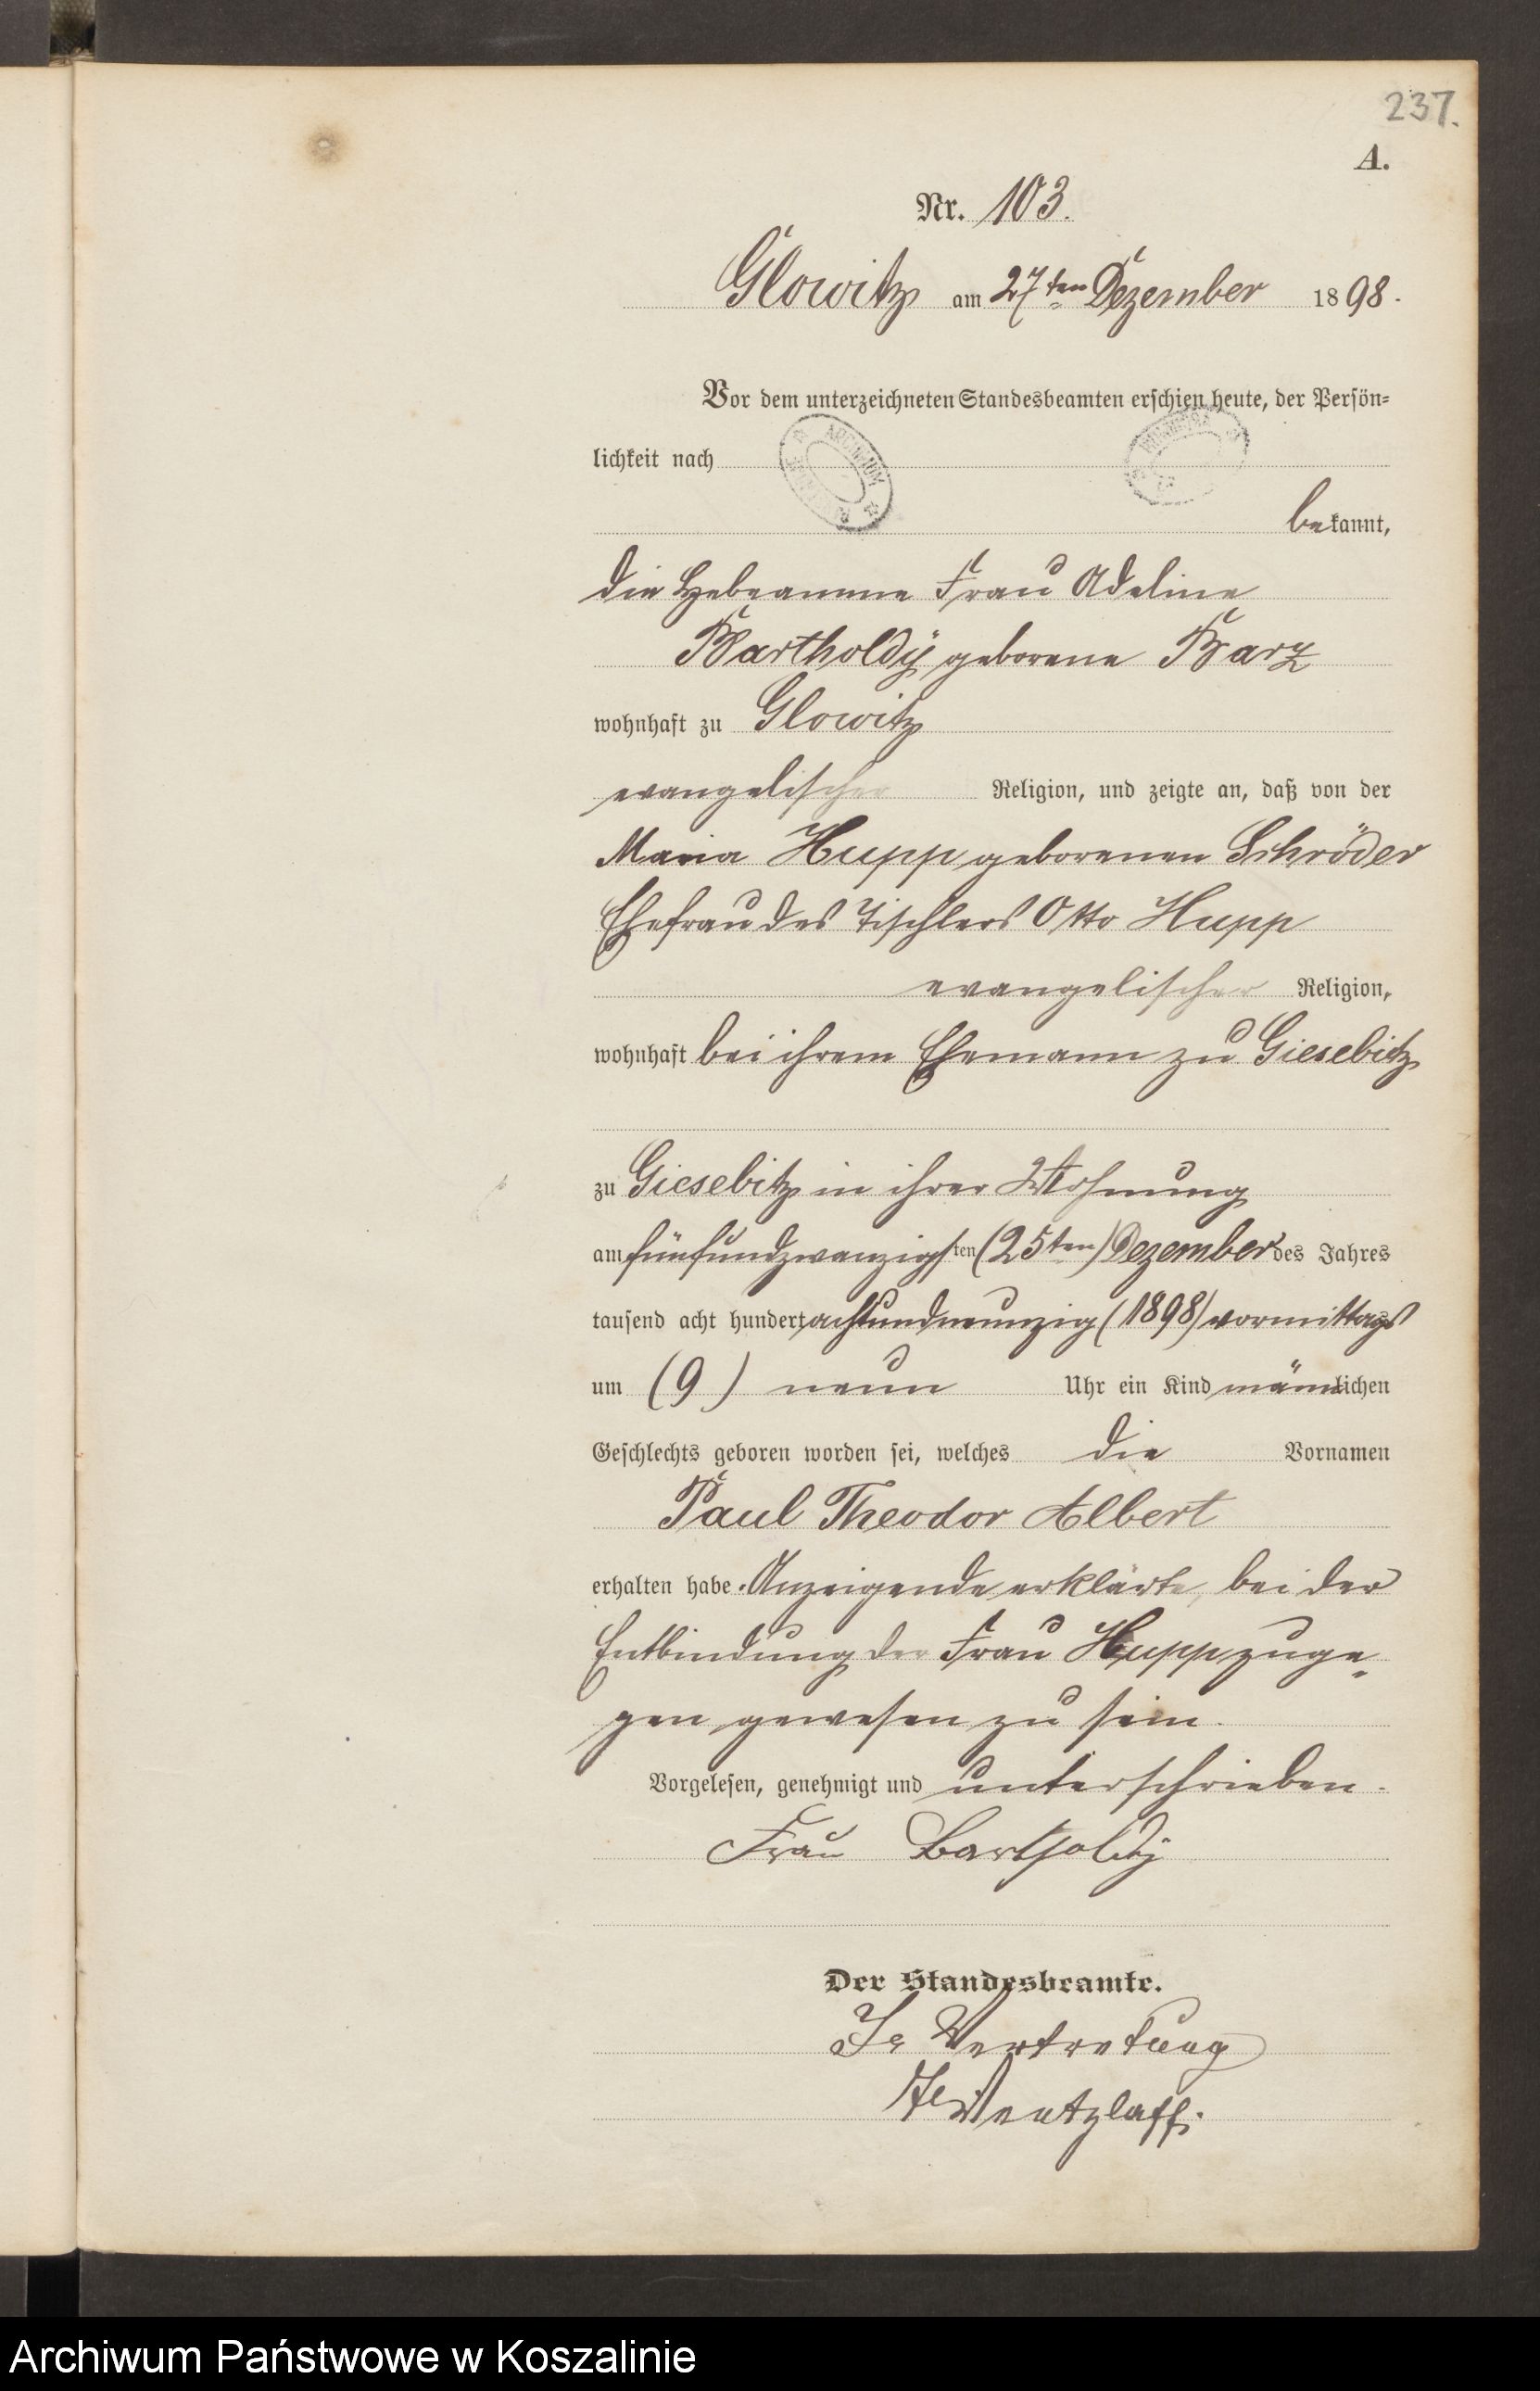 237.
A.
Nr. 103.
Glowitz am 27ten Dezember 1898.
Vor dem unterzeichneten Standesbeamten erschien heute, der Persön=
lichkeit nach
ARCHIWUM
bekannt,
die Hebeamme Frau Adeline
Bartholdÿ geborene Barz
wohnhaft zu Glowitz
evangelischer Religion, und zeigte an, daß von der
Maria Hupp geborenen Schröder
Ehefrau des Tischlers Otto Hupp
evangelischer Religion,
wohnhaft bei ihrem Ehemann zu Giesebitz
zu Giesebitz in ihrer Wohnung
am fünfundzwanzigsten (25ten) Dezember des Jahres
tausend acht hundert achtundneunzig (1898) vormittags
um (9) neun Uhr ein Kind männlichen
Geschlechts geboren worden sei, welches die Vornamen
Paul Theodor Albert
erhalten habe. Anzeigende erklärte, bei der
Entbindung der Frau Hupp zuge=
gen gewesen zu sein.
Vorgelesen, genehmigt und unterschrieben.
Frau Bartholdÿ
Der Standesbeamte.
In Vertretung
Wentzlaff.
Archiwum Państwowe w Koszalinie